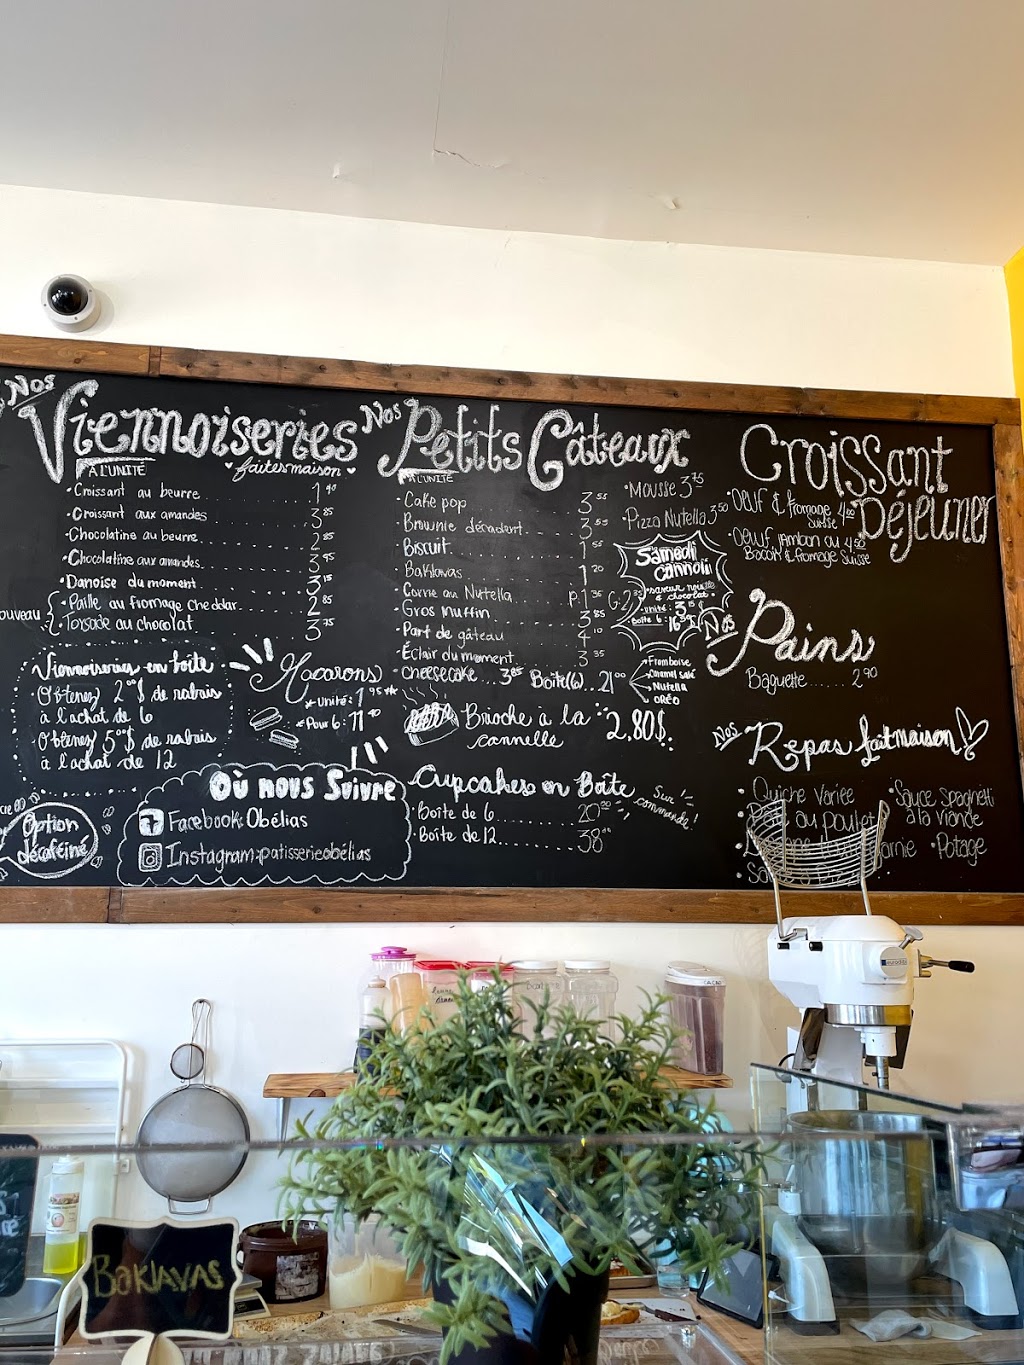 Nos
Viennoiseries
À L'UNITÉ
faites maison
• Croissant au beurre 1 40
• Croissant aux amandes 3 85
• Chocolatine au beurre 2 85
• Chocolatine aux amandes 3 95
• Danoise du moment 3 15
• Paille au fromage cheddar 2 85
• Torsade au chocolat 3 75
Viennoiseries en boîte
Obtenez 2 00$ de rabais
à l'achat de 6
Obtenez 5 00$ de rabais
à l'achat de 12
Macarons
Unité: 1 95
Pour 6: 11 40
Où nous Suivre
Facebook: Obélias
Instagram: patisserieobélias
Option
décaféiné
Nos
Petits Gâteaux
À L'UNITÉ
• Cake pop 3 55
• Brownie décadent 3 55
• Biscuit 1 55
• Baklavas 1 20
• Carré au Nutella P: 1 35 G: 2 35
• Gros muffin 3 85
• Part de gâteau 4 10
• Éclair du moment 3 35
• Cheesecake 3 85 Boîte(6) 21 00
Framboise
Caramel salé
Nutella
ORÉO
• Mousse 3 75
• Pizza Nutella 3 50
Samedi
Cannoli
& chocolat
Unité: 3 15
Boîte 6: 16
Brioche à la
cannelle
2,80$
Cupcakes en Boîte
• Boîte de 6 20 00
• Boîte de 12 38
Sur
commande!
Croissant
Déjeuner
• Oeuf & fromage
Suisse 4
• Oeuf, jambon ou 4 50
Bacon & fromage Suisse
Nos
Pains
Baguette 2 90
Nos
Repas fait maison
• Quiche Variée
• Sauce spaghetti
à la viande
au poulet
• Potage
CACAO
BAKLAVAS